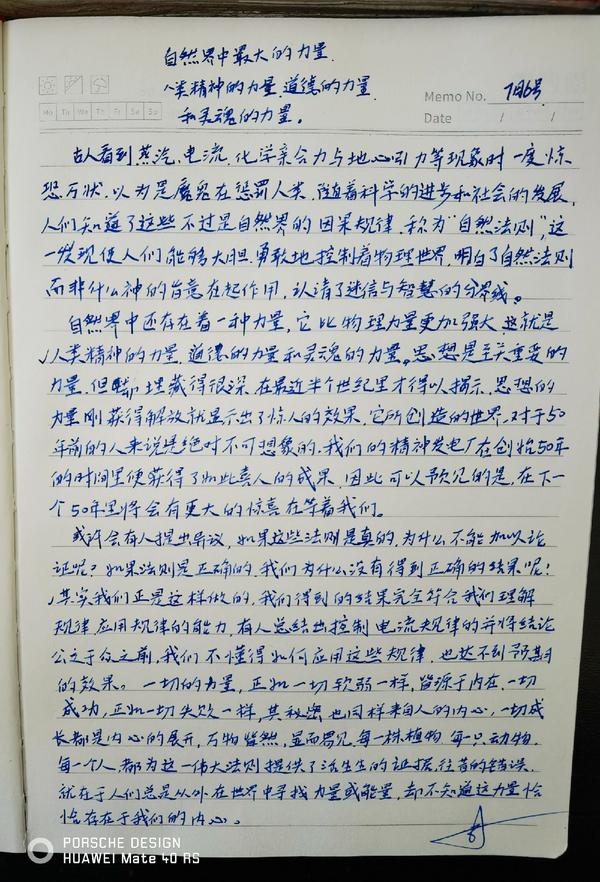 自然界中最大的力量.
人类精神的力量.道德的力量.
和灵魂的力量。
Memo No. 7月6号
Mo Tu We Th Fr Sa Su
Date / /
古人看到蒸汽、电流、化学亲合力与地心引力等现象时一度惊
恐万状.以为是魔鬼在惩罚人类.随着科学的进步和社会的发展,
人们知道了这些不过是自然界的因果规律.称为“自然法则”,这
一发现使人们能够大胆.勇敢地控制着物理世界.明白了自然法则
而非什么神的旨意在起作用.认清了迷信与智慧的分界线。
自然界中还存在着一种力量,它比物理力量更加强大.这就是
人类精神的力量.道德的力量和灵魂的力量。思想是至关重要的
力量.但却埋藏得很深.在最近半个世纪里才得以揭示.思想的
力量刚获得解放就显示出了惊人的效果.它所创造的世界.对于50
年前的人来说是绝对不可想象的.我们的精神发电厂在创始50年
的时间里便获得了如此喜人的成果.因此可以预见的是,在下一
个50年里将会有更大的惊喜在等着我们。
或许会有人提出异议.如果这些法则是真的.为什么不能加以论
证呢?如果法则是正确的.我们为什么没有得到正确的结果呢!
其实我们正是这样做的.我们得到的结果完全符合我们理解
规律.应用规律的能力.有人总结出控制电流规律的并将结论
公之于众之前.我们不懂得如何应用这些规律.也达不到预期
的效果。一切的力量,正如一切软弱一样,皆源于内在.一切
成功,正如一切失败一样,其秘密也同样来自人的内心,一切成
长都是内心的展开,万物皆然,显而易见.每一株植物.每一只动物.
每一个人.都为这一伟大法则提供了活生生的证据.往昔的错误.
就在于人们总是从外在世界中寻找力量或能量.却不知道这力量恰
恰存在于我们的内心。
PORSCHE DESIGN
HUAWEI Mate 40 RS